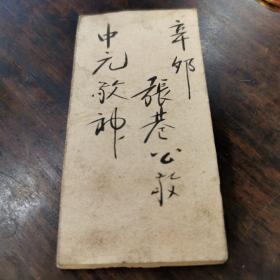 辛卯
張巷公敬
中元敬神